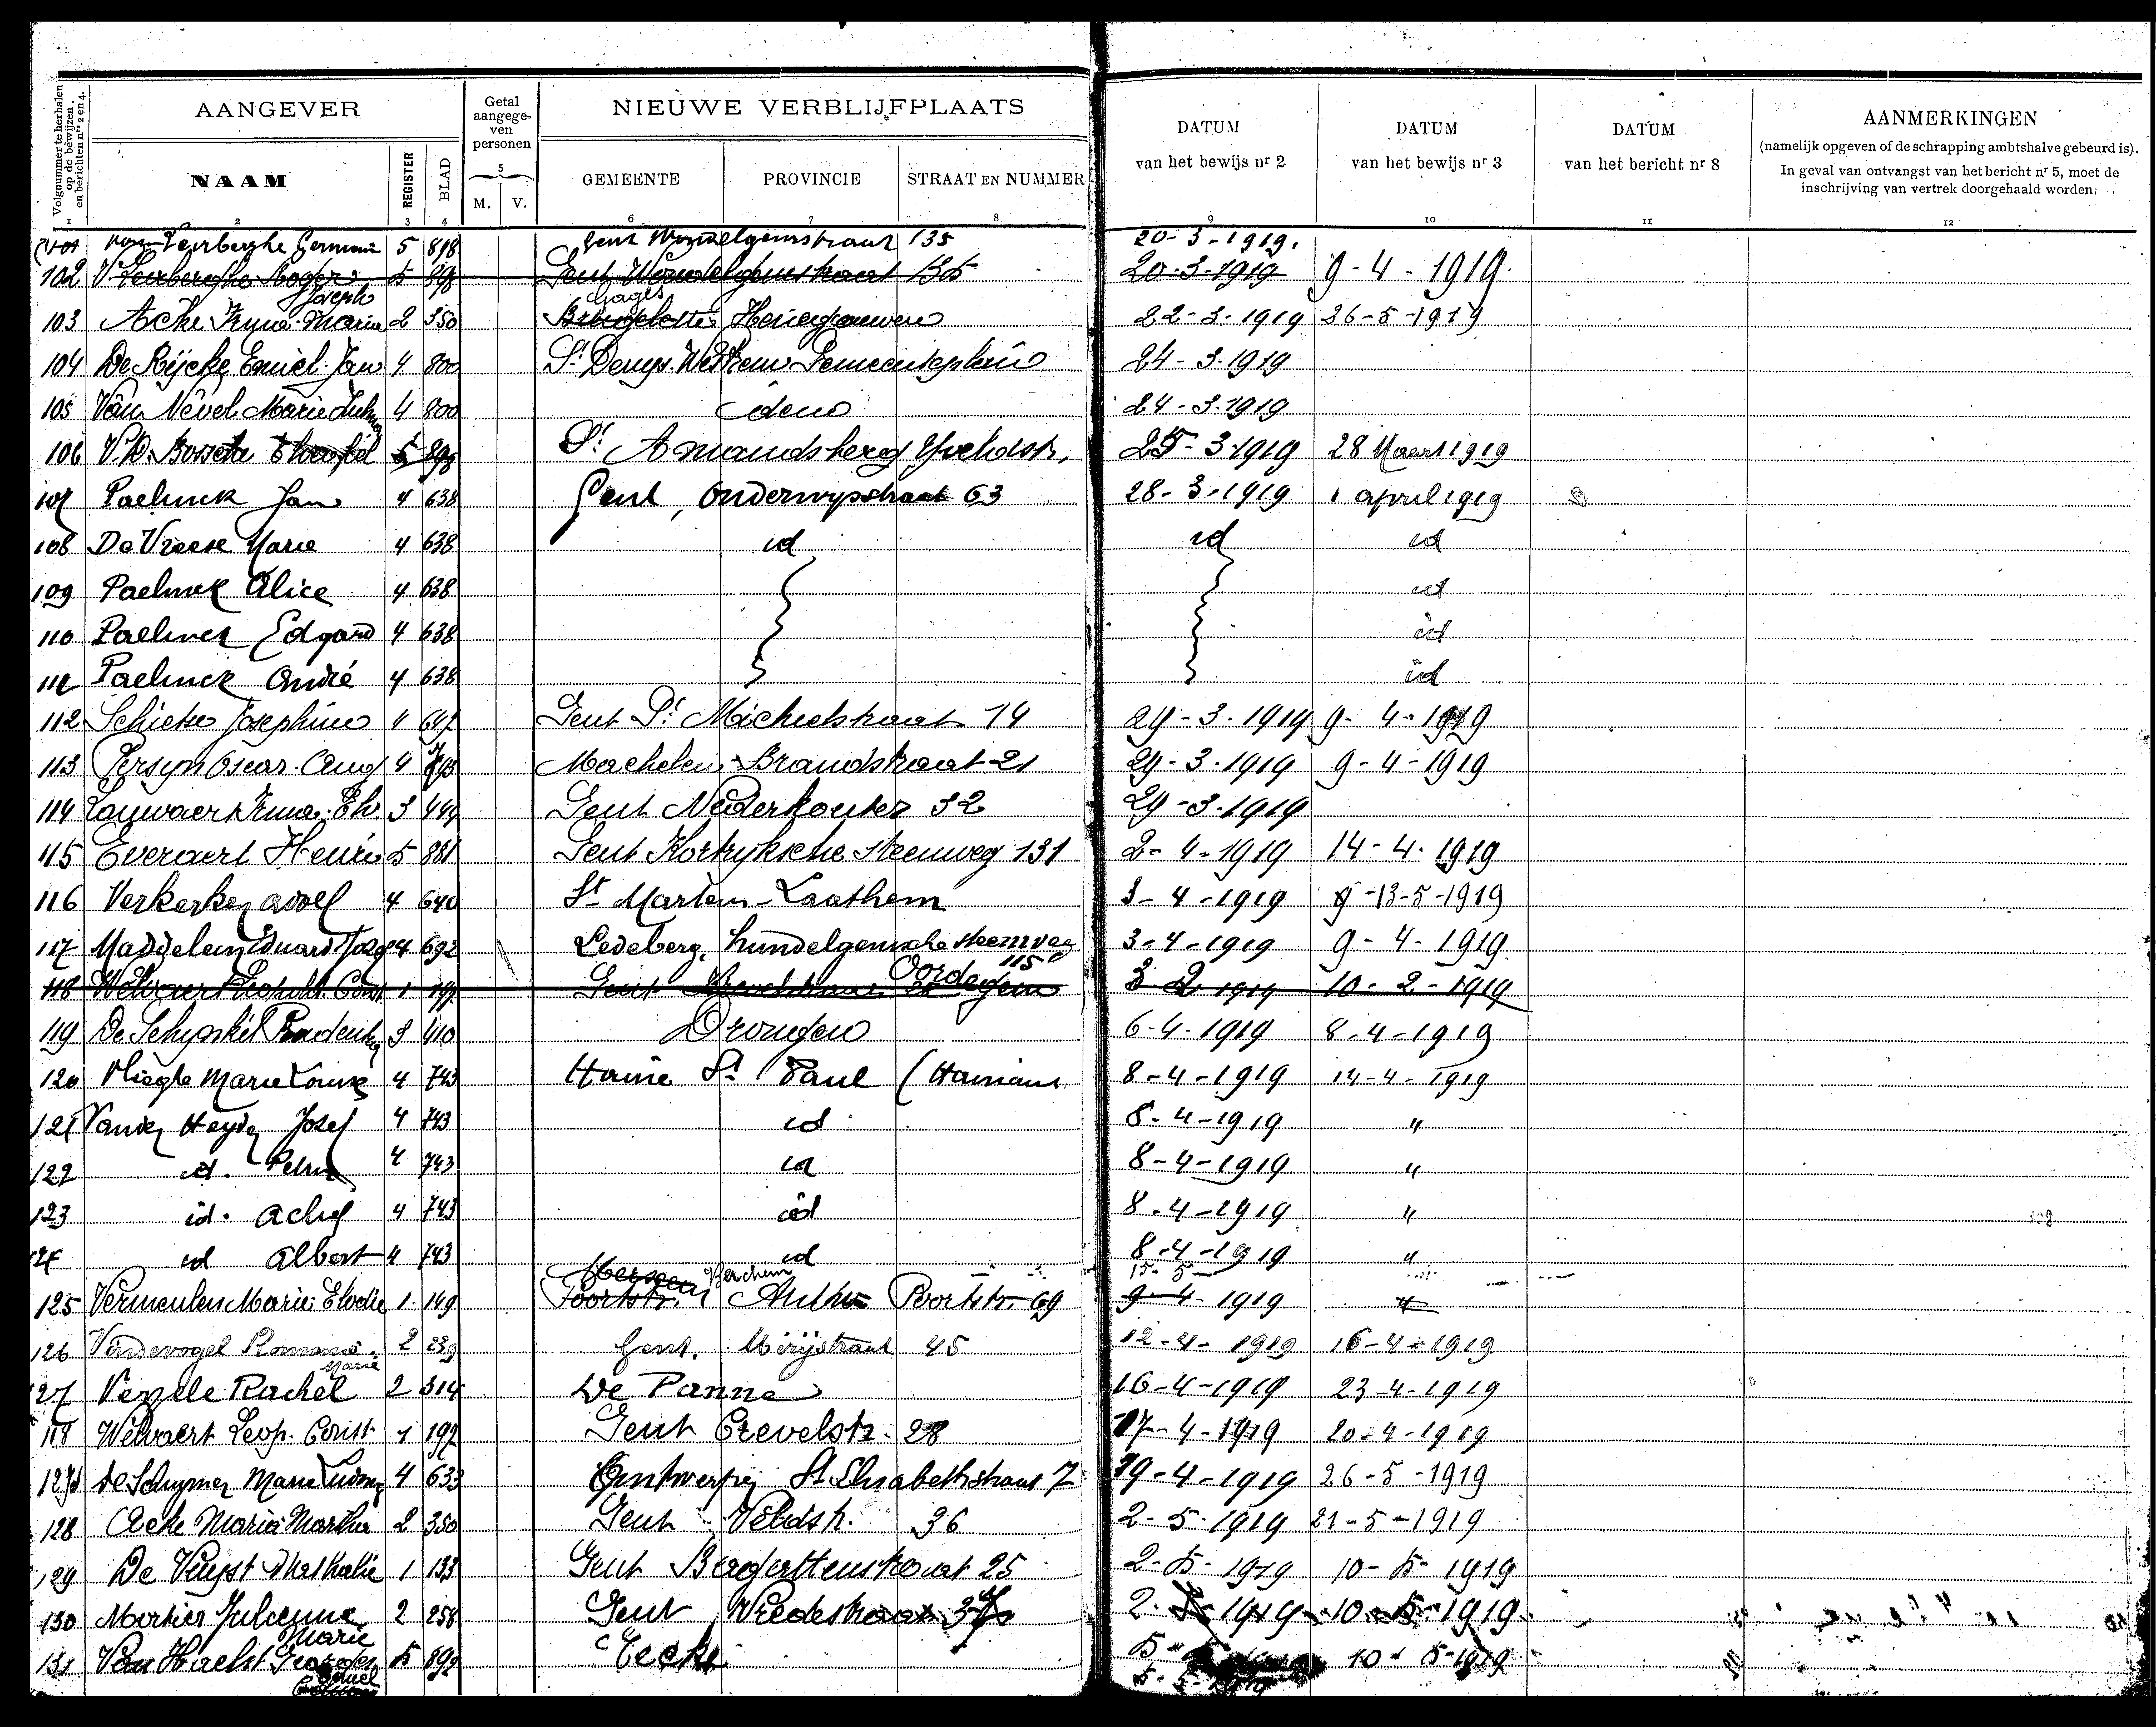 Volgnummer te herhalen op de bewijzen en berichten nrs 2 en 4.
AANGEVER
NAAM
REGISTER
BLAD
Getal aangege-ven personen
M. V.
NIEUWE VERBLIJFPLAATS
GEMEENTE PROVINCIE STRAAT EN NUMMER
DATUM van het bewijs nr 2
DATUM van het bewijs nr 3
DATUM van het bericht nr 8
AANMERKINGEN
(namelijk opgeven of de schrapping ambtshalve gebeurd is).
In geval van ontvangst van het bericht nr 5, moet de
inschrijving van vertrek doorgehaald worden.
1 2 3 4 5 6 7 8 9 10 11 12
5 898 Gent Wondelgemstraat 135 20-3-1919.
102 5 898 Gent Wondelgemstraat 135 20-3-1919 9-4-1919
Joseph Gages
103 Acke Irma Maria 2 350 Henegouwen 22-3-1919 26-5-1919
104 De Rijcke Emiel Jan 4 800 St Denys Westrem Gemeenteplein 24-3-1919
105 Van Nevel Marie 4 800 idem 24-3-1919
106 V.D. Bossche 5 898 St Amandsberg 25-3-1919 28 Maart 1919
107 Paelinck Jan 4 638 Gent, Onderwijsstraat 63 28-3-1919 1 april 1919
108 De Vreese Marie 4 638 id id id
109 Paelinck Alice 4 638 id
110 Paelinck Edgard 4 638 id
111 Paelinck André 4 638 id
112 Schietse Josephine 4 647 Gent St Michielstraat 14 29-3-1919 9-4-1919
113 Persyn Oscar Aug 4 743 Machelen Brandstraat 21 29-3-1919 9-4-1919
114 Lauwaert Irma 3 449 Gent Nederkouter 32 29-3-1919
115 Everaert Henri 5 881 Gent Kortryksche Steenweg 131 2-4-1919 14-4-1919
116 Verkerken adolf 4 640 St Martens-Laathem 3-4-1919 9-13-5-1919
117 Maddelein Eduard Jozef 4 692 Ledeberg, hundelgemsche steenweg 115 3-4-1919 9-4-1919
118 Welvaert Leopold Const 1 197 Gent Oordegem 3-2-1919 10-2-1919
119 De Schynkel Prudentia 3 410 Drongen 6-4-1919 8-4-1919
120 Vliegh Marie Louise 4 743 Haine St Paul (Hainaut 8-4-1919 14-4-1919
121 Vander Heyden Josef 4 743 id 8-4-1919 "
122 id. Petrus 4 743 id 8-4-1919 "
123 id. achiel 4 743 id 8-4-1919 "
124 id Albert 4 743 id 8-4-1919 "
Berchem 15-5
125 Vermeulen Marie Elodie 1 149 Poortstr. Antw Poortstr. 69 9-4-1919 "
126 Vindevogel Romanie Marie 2 239 Gent. Meijstraat 45 12-4-1919 16-4-1919
127 Venele Rachel 2 314 De Panne 16-4-1919 23-4-1919
118 Welvaert Leop. Const 1 197 Gent Crevelstr. 28 17-4-1919 20-4-1919
De Schrymer Marie 4 633 Antwerpen St Elisabethstraat 7 19-4-1919 26-5-1919
128 Acke Maria Martha 2 350 Gent Veldstr. 36 2-5-1919 21-5-1919
129 De Vuyst Nathalie 1 133 Gent Bagattenstraat 25 2-5-1919 10-5-1919
130 Mortier Julienne Marie 2 258 Gent Vredestraat 2-5-1919 10-5-1919
131 Van Haelst Georges 5 892 Eecke 5-5-1919 10-5-1919